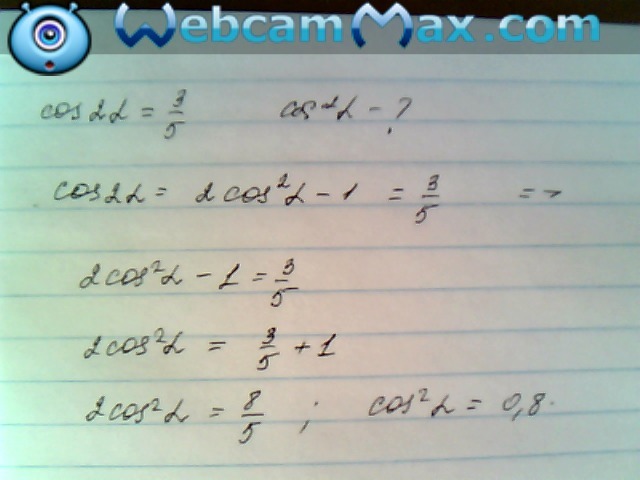 WebcamMax.com
cos2α = 3/5 cos²α - ?
cos2α = 2cos²α - 1 = 3/5 =>
2cos²α - 1 = 3/5
2cos²α = 3/5 + 1
2cos²α = 8/5 ; cos²α = 0,8.